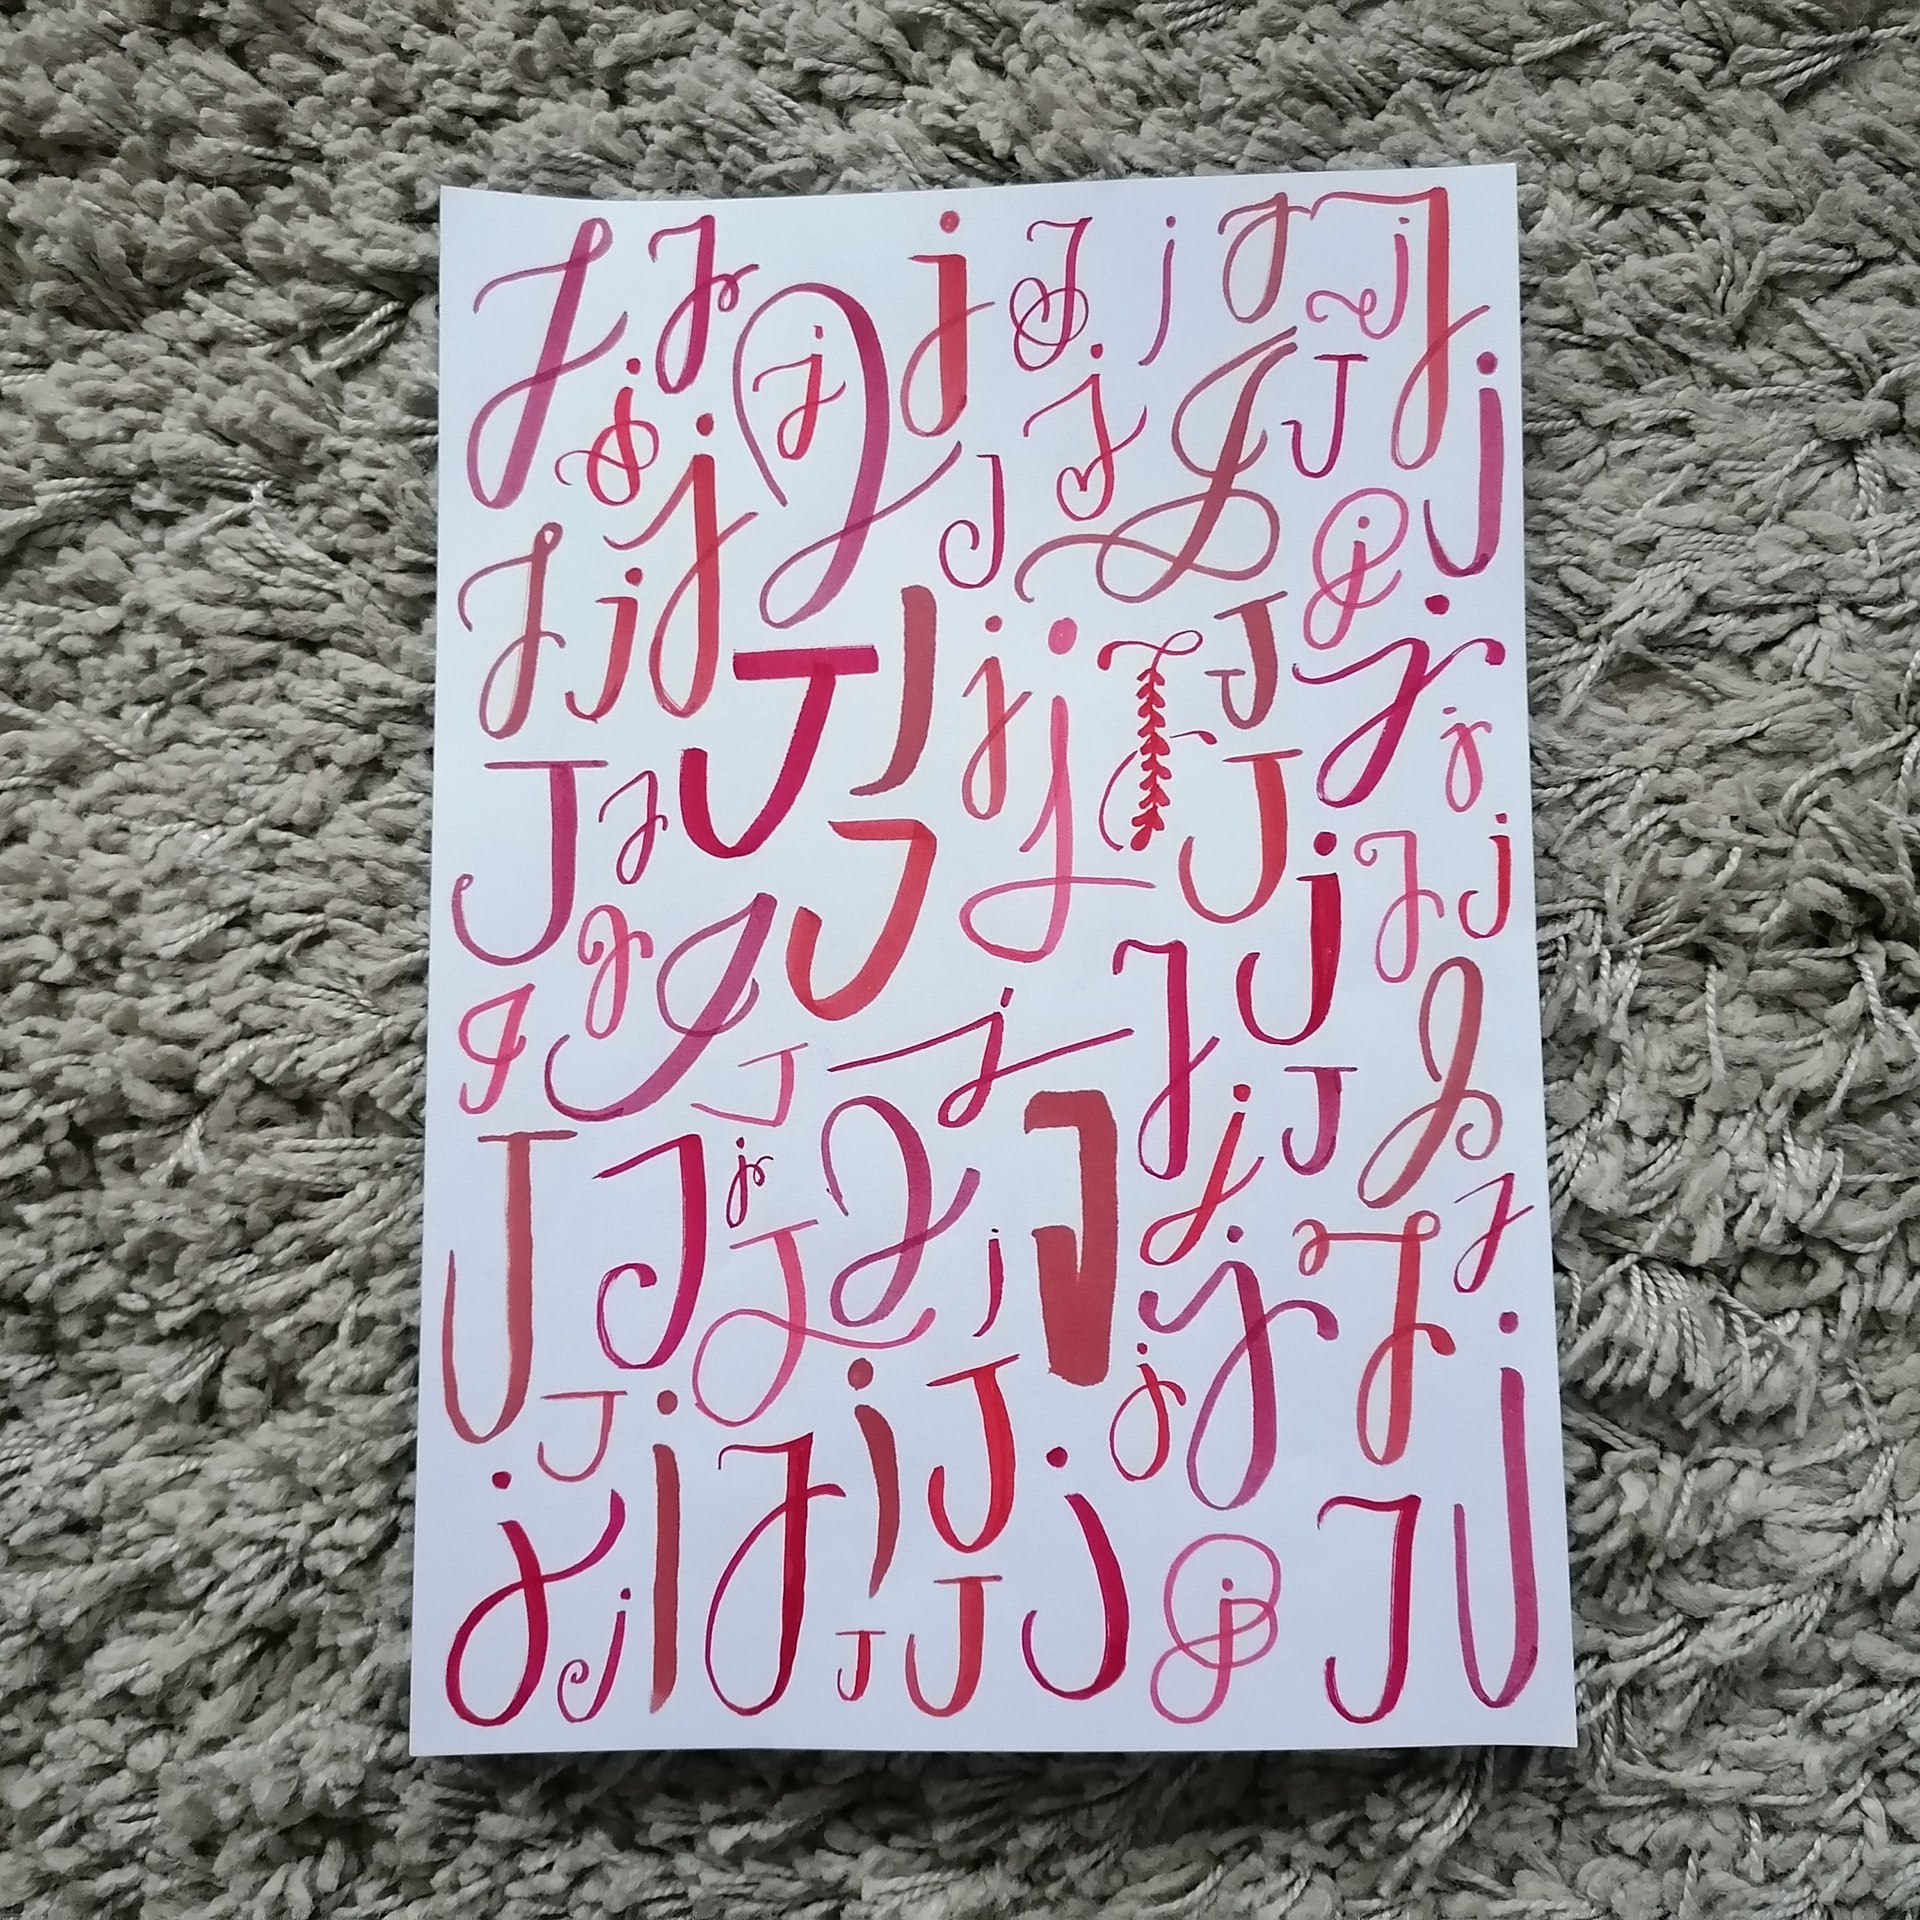 J J j J j J j J
j J j j J J j
J j j J J j
J j j J J j j
J J J J J J J j
J J J j J j J
J J J J J j J
J J j J j J j J J
J J j J j j J j
j j j J j J j J J
J J j j